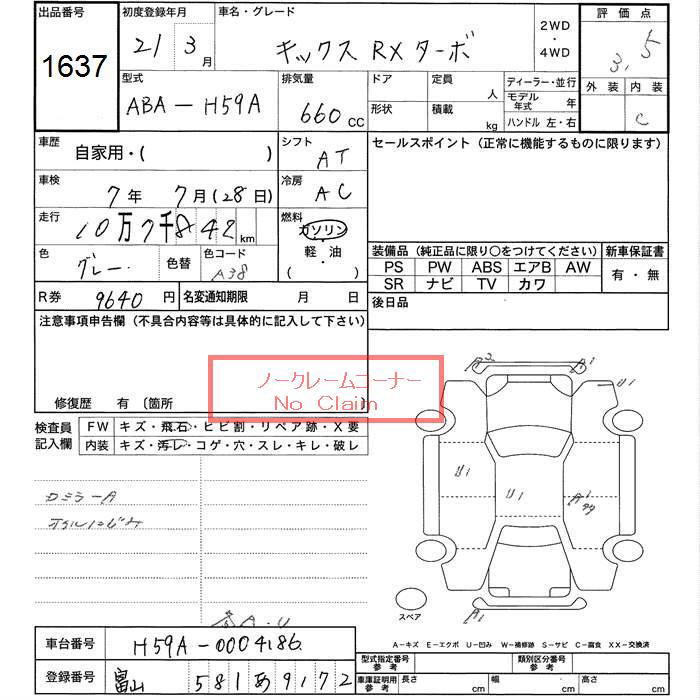 出品番号
1637
初度登録年月
21 3月
車名・グレード
キックス RX ターボ
2WD
・
4WD
評価点
3.5
外装 内装
C
型式
ABA-H59A
排気量
660cc
ドア
形状
定員
人
積載
kg
ディーラー・並行
モデル年式 年
ハンドル 左・右
車歴
自家用・( )
シフト
AT
車検
7年 7月(28日)
冷房
AC
走行
10万7千842km
燃料
ガソリン
・
軽・油
( )
色
グレー
色替
色コード
A38
R券 9640円
名変通知期限 月 日
セールスポイント(正常に機能するものに限ります)
装備品(純正品に限り○をつけてください)
PS PW ABS エアB AW
SR ナビ TV カワ
新車保証書
有・無
後日品
注意事項申告欄(不具合内容等は具体的に記入して下さい)
ノークレームコーナー
No Claim
修復歴 有〔箇所
検査員記入欄
FW キズ・飛石・ヒビ割・リペア跡・X要
内装 キズ・汚レ・コゲ・穴・スレ・キレ・破レ
A2
A1
U1
U1
U1
A1
A1
スペア
A-キズ E-エクボ U-凹み W-補修跡 S-サビ C-腐食 XX-交換済
車台番号
H59A-0004186
登録番号
富山 581 あ 9172
型式指定番号
参考
類別区分番号
参考
車庫証明用
参考
長さ cm
幅 cm
高さ cm